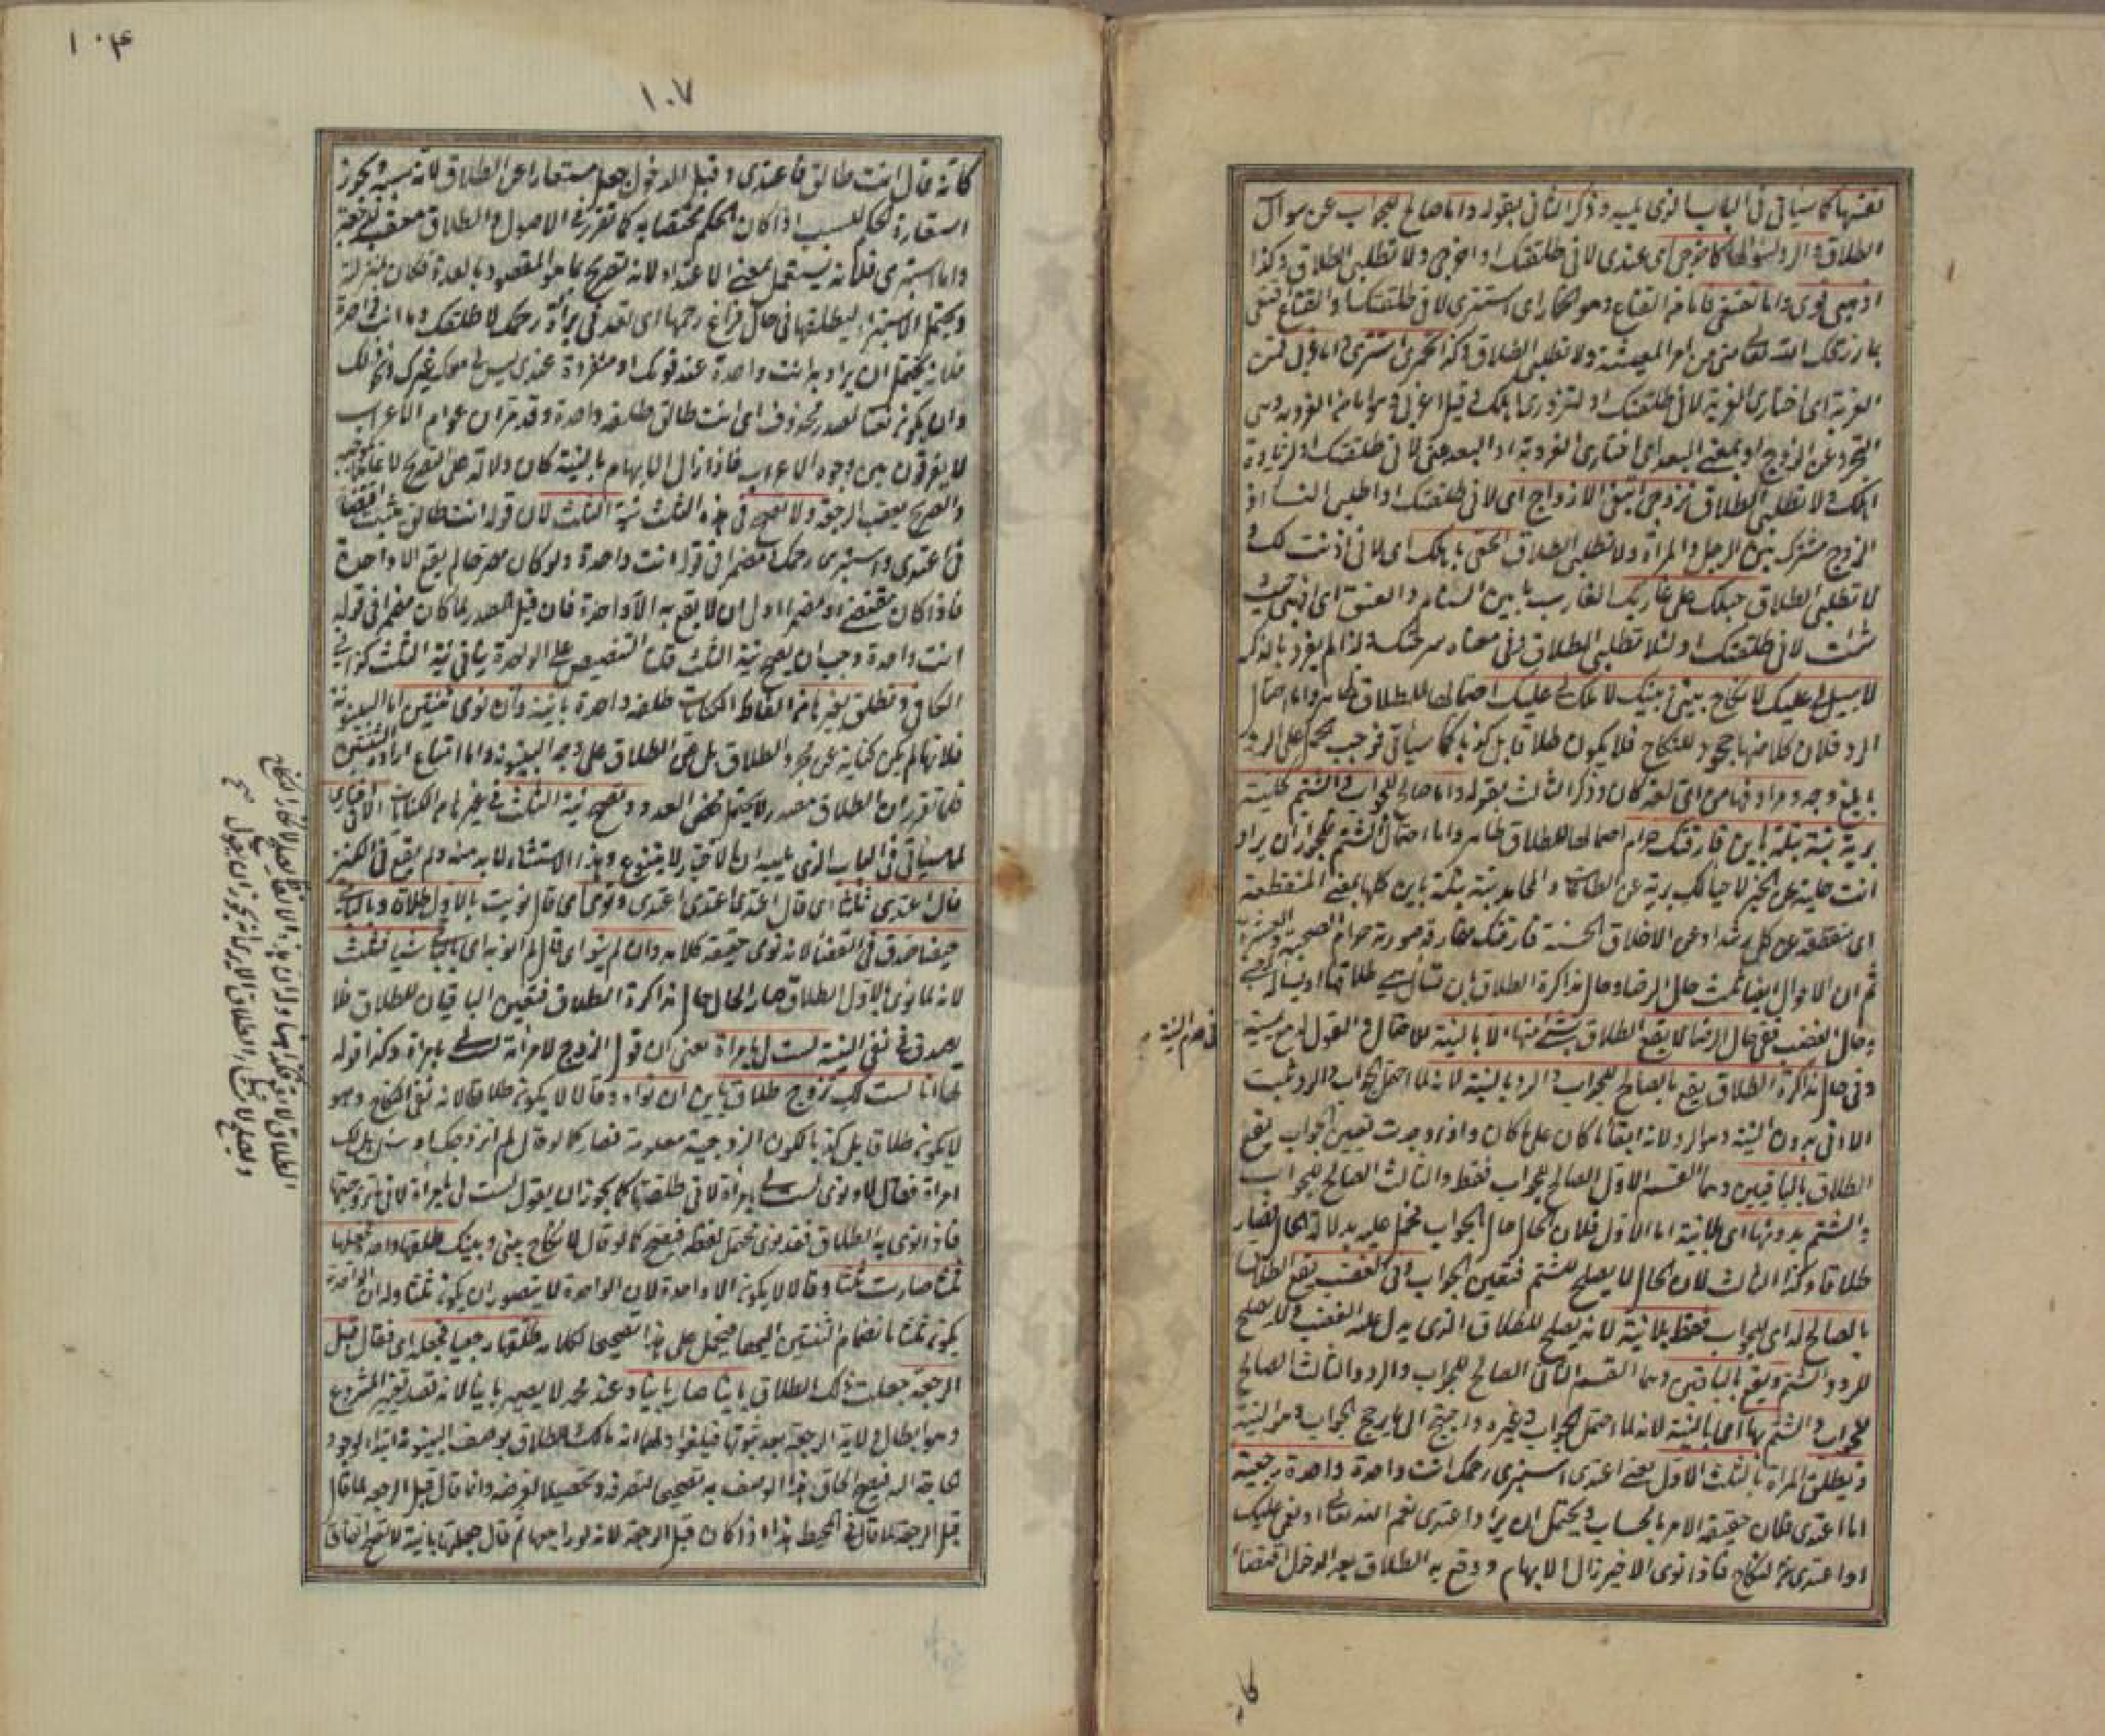 نفسها كما سيأتي في الباب الذي يليه وذكر الثاني بقوله واما صالح للجواب عن سوال
الطلاق والرد لسؤالها كاخرجي اي عندي لاني طلقتك او اخرجي ولا تطلبي الطلاق وكذا
اذهبي قومي واما تقنعي فاما من القناع وهو الخمار اي استتري لاني طلقتك او القناعة فتقنعي
بما رزقك الله تعالى مني من امر المعيشة ولا تطلبي الطلاق وكذا تخمري استتري واما
الغربة اي اختاري الغربة لاني طلقتك او لتزوري اهلك وقيل اعزبي وهو اما من العزوبة وهي
التجرد عن الزوج او بمعنى البعد اي اختاري العزوبة او البعد عني لاني طلقتك او لزيارة
اهلك ولا تطلبي الطلاق تزوجي ابتغي الازواج اي لاني طلقتك او اطلبي النساء اذ
الزوج مشترك بين الرجل والمراة ولا تطلبي الطلاق الحقي باهلك اي لاني اذنت لك و
لا تطلبي الطلاق حبلك على غاربك الغارب ما بين السنام والعنق اي اذهبي حيث
شئت لاني طلقتك او لئلا تطلبي الطلاق وفي معناه سرحتك فلذا لم يفرد بالذكر
لا سبيل لي عليك لا نكاح بيني وبينك لا ملك لي عليك احتمالها للطلاق ظاهر واما احتمال
الرد فلان كلا منها جحود للنكاح فلا يكون طلاقا بل كذبا كما سيأتي فوجب حمله على الرد
بابلغ وجه ومرادفها من اي لغة كان وذكر الثالث بقوله واما صالح للجواب والشتم خلية
برية بتة بتلة باين فارقتك حرام احتمالها للطلاق ظاهر واما احتمال الشتم فلجواز ان يراد
انت خلية عن الخير لا حيا لك برية عن الطاعات والمحامد بتة بتلة باين كلها بمعنى المنقطعة
اي منقطعة عن كل رشد او عن الاخلاق الحسنة فارقتك مفارقة صورية حرام الصحبة والعشرة
ثم ان الاحوال ايضا ثلث حال الرضا وحال مذاكرة الطلاق بان تسأل هي طلاقها او يسأله غيرها
وحال الغضب ففي حال الرضا لا يقع الطلاق بشيء منها الا بالنية للاحتمال والقول له مع يمينه
في عدم النية
وفي حال مذاكرة الطلاق يقع بالصالح للجواب والرد بالنية لانه لما احتمل الجواب والرد ثبت
الادنى بدون النية وهو الرد لانه ابقاء ما كان على ما كان واذا وجدت تعين الجواب يقع
الطلاق بالباقيين وهما القسم الاول الصالح للجواب فقط والثالث الصالح للجواب
والشتم بدونها اي بلا نية اما الاول فلان الحال حال الجواب فحمل عليه بدلالة الحال فصار
طلاقا وكذا الثالث لان الحال لا يصلح للشتم فتعين الجواب وفي الغضب يقع الطلاق
بالصالح له اي للجواب فقط بلا نية لانه يصلح للطلاق الذي يدل عليه الغضب ولا يصلح
للرد والشتم ويقع بالباقيين وهما القسم الثاني الصالح للجواب والرد والثالث الصالح
للجواب والشتم بها اي بالنية لانه لما احتمل الجواب وغيره واحتيج الى ما يرجح الجواب وهو النية
وتطلق المراة بالثلث الاول يعني اعتدي استبري رحمك انت واحدة واحدة رجعية
اما اعتدي فلان حقيقة الامر بالحساب ويحتمل ان يراد اعتدي نعم الله تعالى او نعمي عليك
او اعتدي من النكاح فاذا نوى الاخير زال الابهام ووقع به الطلاق بعد الدخول اقتضاء
كا
١٠۴
١٠٧
كانه قال انت طالق فاعتدي وقبل الدخول جعل مستعارا عن الطلاق لانه سببه ويجوز
استعارة الحكم للسبب اذا كان الحكم مختصا به كما تقرر في الاصول والطلاق معقب للرجعة
واما استبري فلانه يستعمل بمعنى الاعتداد لانه تصريح بما هو المقصود بالعدة فكان بمنزلته
ويحتمل الاستبراء ليطلقها في حال فراغ رحمها اي تعرفي براءة رحمك لاطلقك واما انت واحدة
فلانه يحتمل ان يراد به انت واحدة عند قومك او منفردة عندي ليس لي معك غيرك ونحو ذلك
وان يكون نعتا لمصدر محذوف اي انت طالق طلقة واحدة وقد مر ان عوام الاعراب
لا يفرقون بين وجوه الاعراب فاذا زال الابهام بالنية كان دلالة على الصريح لا عاملا بموجبه
والصريح يعقب الرجعة ولا تصح في هذه الثلث نية الثلث لان قوله انت طالق يثبت اقتضاء
في اعتدي واستبري رحمك ومضمر في قوله انت واحدة ولو كان مصرحا لم يقع الا واحدة
فاذا كان مقتضى او مضمرا اولى ان لا يقع به الا واحدة فان قيل المصدر لما كان مضمرا في قوله
انت واحدة وجب ان يصح نية الثلث قلنا التنصيص على الواحدة ينافي نية الثلث كذا في
الكافي وتطلق بغيرها من الفاظ الكنايات طلقة واحدة باينة وان نوى ثنتين اما البينونة
فلانها لم يكن كناية عن مجرد الطلاق بل عن الطلاق على وجه البينونة واما امتناع ارادة الثنتين
فلما تقرر ان الطلاق مصدر لا يحتمل محض العدد وتصح نية الثلث في غير هام الكنايات الا اختاري
لما سيأتي في الباب الذي يليه ان الاختيار لا يتنوع وهذا الاستثناء لا بد منه ولم يقع في الكنز
قال اعتدي ثلثا اي قال اعتدي اعتدي اعتدي ونوى اي قال نويت بالاول طلاقا وبالباقي
حيضا صدق في القضاء لانه نوى حقيقة كلامه وان لم ينو اي قال لم انو به اي بالباقي شيا فثلث
لانه لما نوى بالاول الطلاق صار الحال حال مذاكرة الطلاق فتعين الباقيان للطلاق فلا
يصدق في نفي النية لست لي بامراة يعني ان قول الزوج لامراته لست لي بامراة وكذا قوله
لها انا لست لك بزوج طلاق باين ان نواه وقالا لا يكون طلاقا لانه نفي النكاح وهو
لا يكون طلاقا بل كذبا لكون الزوجية معلومة فصار كما لو قال لم اتزوجك او سئل هل لك
امراة فقال لا ونوى لست لي بامراة لاني طلقتها كما يجوز ان يقول لست لي بامراة لاني ما تزوجتها
فاذا نوى به الطلاق فقد نوى محتمل لفظه فيصح كما لو قال لا نكاح بيني وبينك طلقها واحدة فجعلها
ثلثا صارت ثلثا وقالا لا يكون الا واحدة لان الواحدة لا يتصور ان يكون ثلثا وله ان الواحدة
يكون ثلثا بانضمام الثنتين اليها فيحمل على هذا تصحيحا لكلامه طلقها رجعيا فجعله اي فقال قبل
الرجعة جعلت ذلك الطلاق باينا صار باينا وعند محمد لا يصير باينا لانه قصد تغيير المشروع
وهو ابطال ولاية الرجعة بعد ثبوتها فيلغو ولهما انه مالك للطلاق بوصف البينونة ابتداء لوجود
الحاجة اليه فيصح الحاق هذا الوصف به تصحيحا لتصرفه وتحصيلا لغرضه وانما قال قبل الرجعة لما قال
قبل الرجعة لما قال في المحيط هذا اذا كان قبل الرجعة لانه لو راجعها ثم قال جعلتها باينة لا تصح اتفاقا